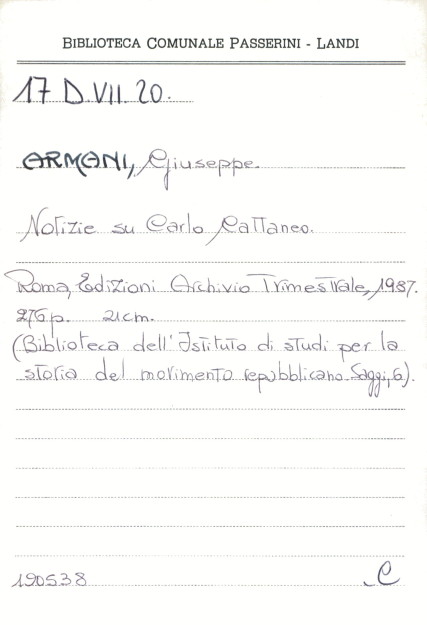 BIBLIOTECA COMUNALE PASSERINI - LANDI
17 D.VII.20.
ARMANI, Giuseppe.
Notizie su Carlo Cattaneo.
Roma, Edizioni Archivio Trimestrale, 1987.
276p. 21cm.
(Biblioteca dell'Istituto di studi per la
storia del movimento repubblicano. Saggi, 6).
190538
C